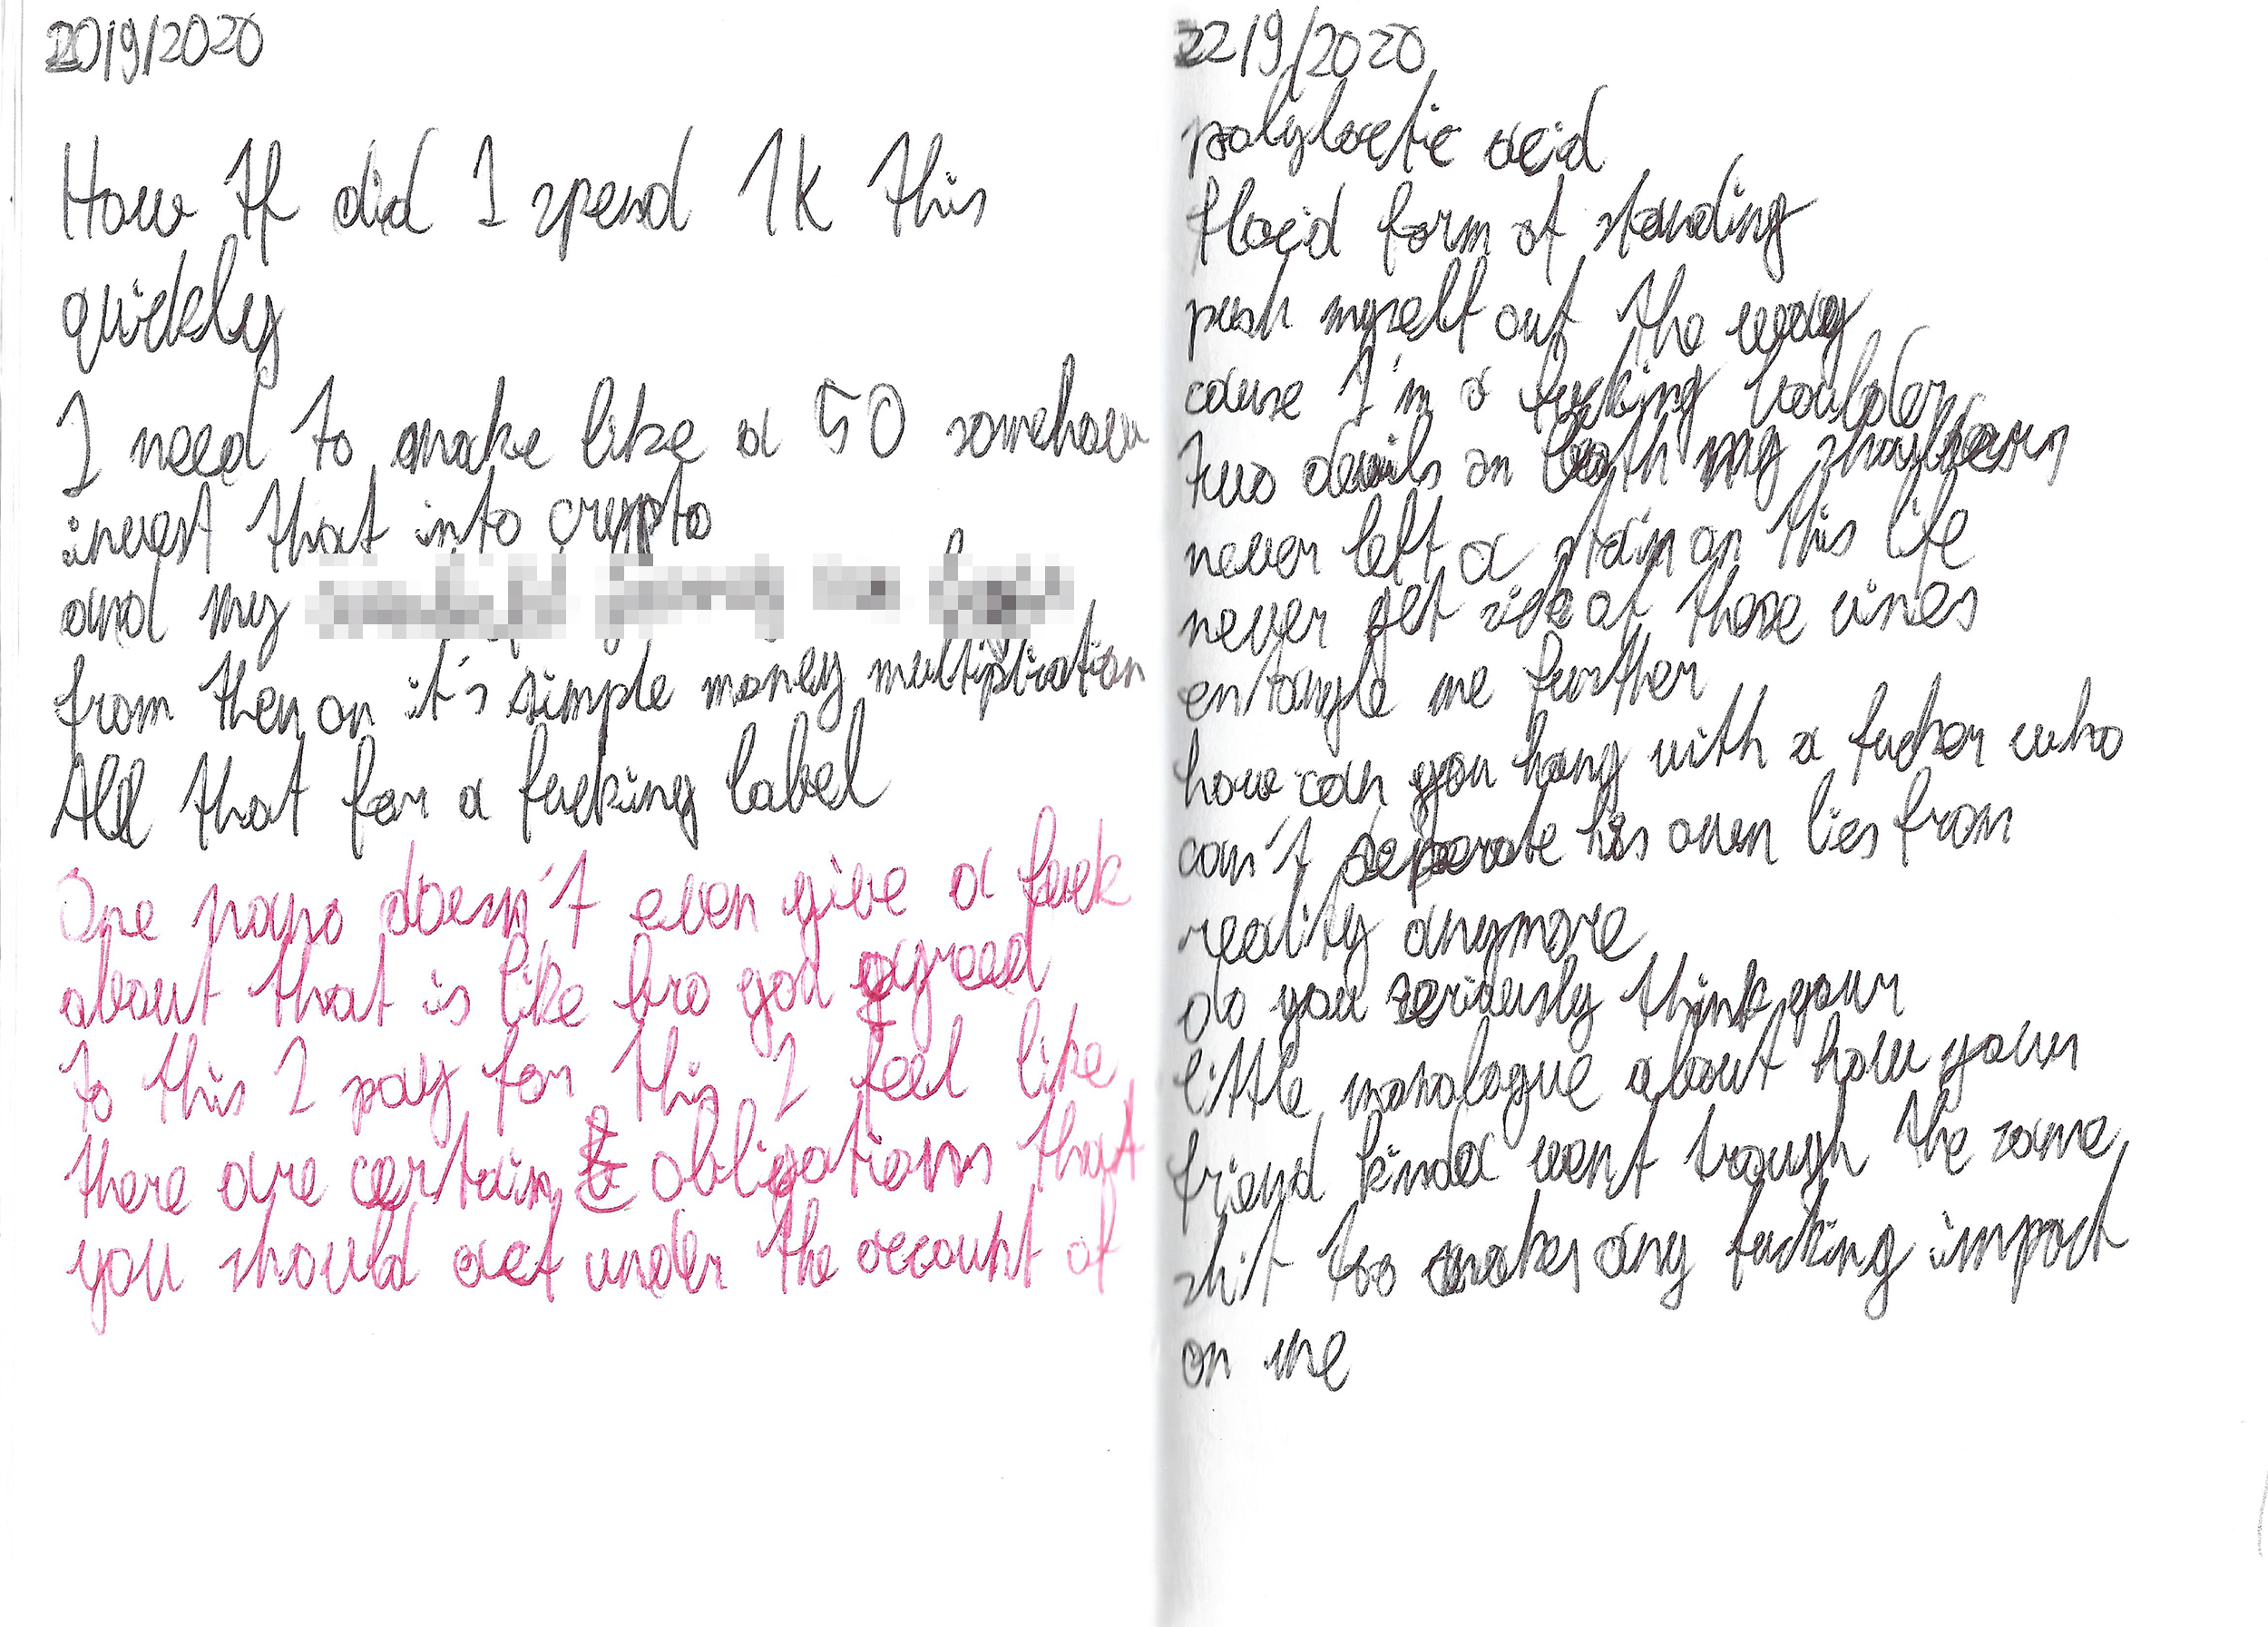 20/9/2020
How tf did I spend 1k this
quickly
I need to make like a 50 somehow
invest that into crypto
and my
from then on it's simple money multiplication
All that for a fucking label
One nano doesn't even give a fuck
about that is like bro you agreed
to this I pay for this I feel like
there are certain obligations that
you should act under the account of
22/9/2020
polylactic acid
flacid form of standing
push myself out the way
cause I'm a fucking boulder
two devils on both my shoulders
never left a stain on this life
never get rid of those vines
entangle me further
how can you hang with a fucker who
can't seperate his own lies from
reality anymore
do you seriously think your
little monologue about how your
friend kinda went trough the same
shit too makes any fucking impact
on me